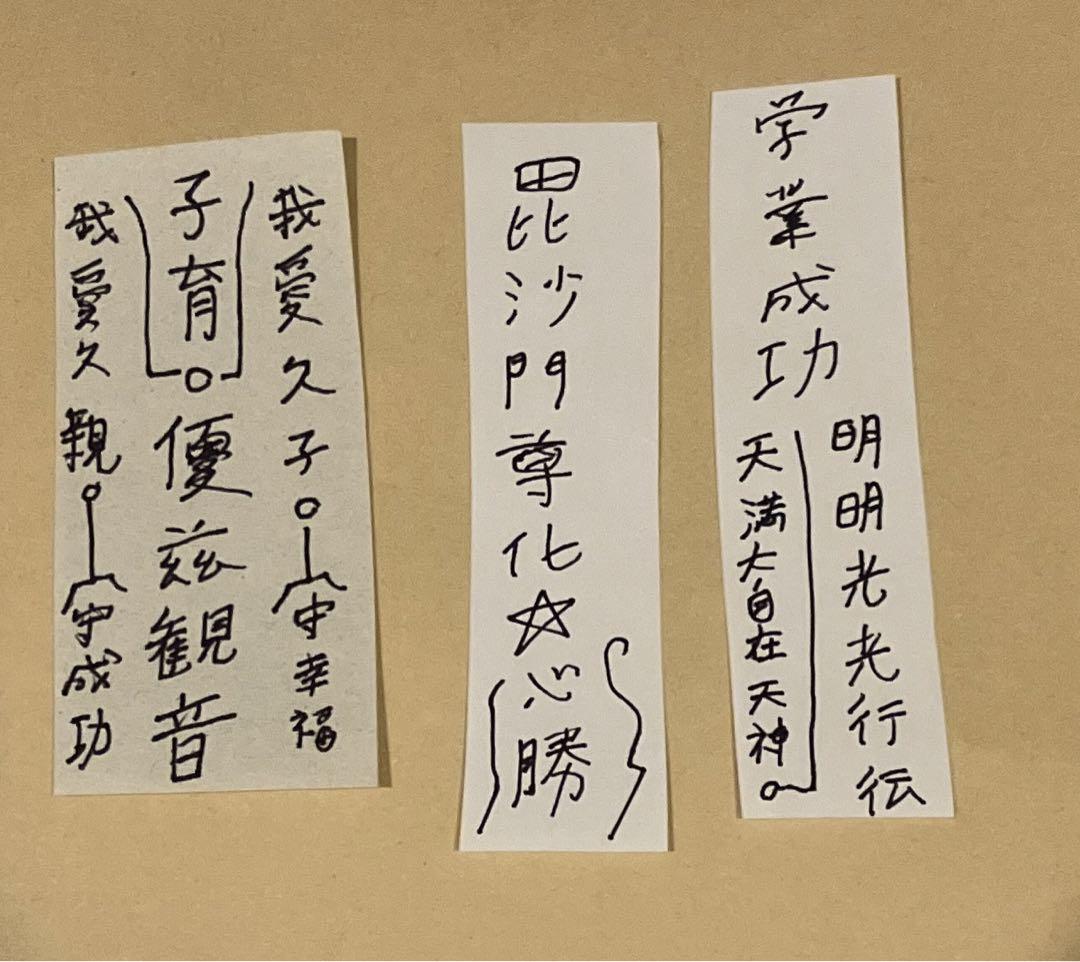 学業成功
明明光光行伝
天満大自在天神
毘沙門尊化☆必勝
我愛久子守幸福
子育優兹観音
我愛久親守成功